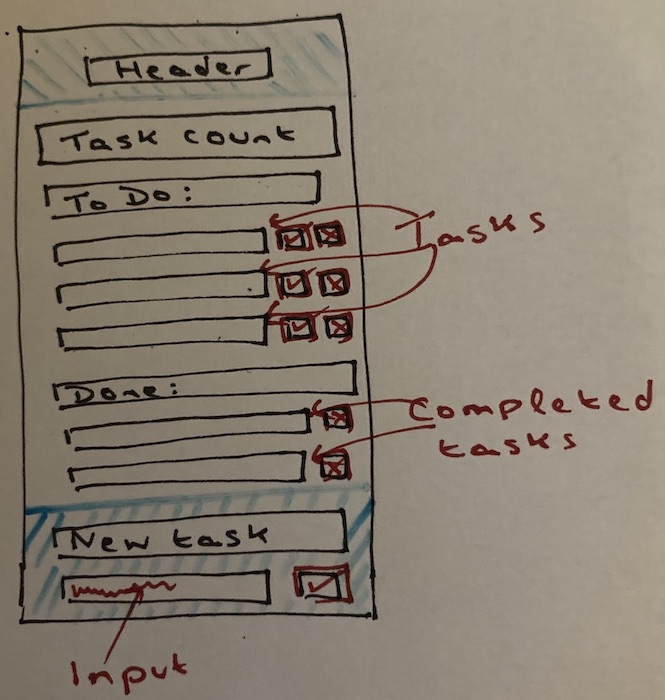 Header
Task count
To Do:
Tasks
Done:
Completed
tasks
New task
Input